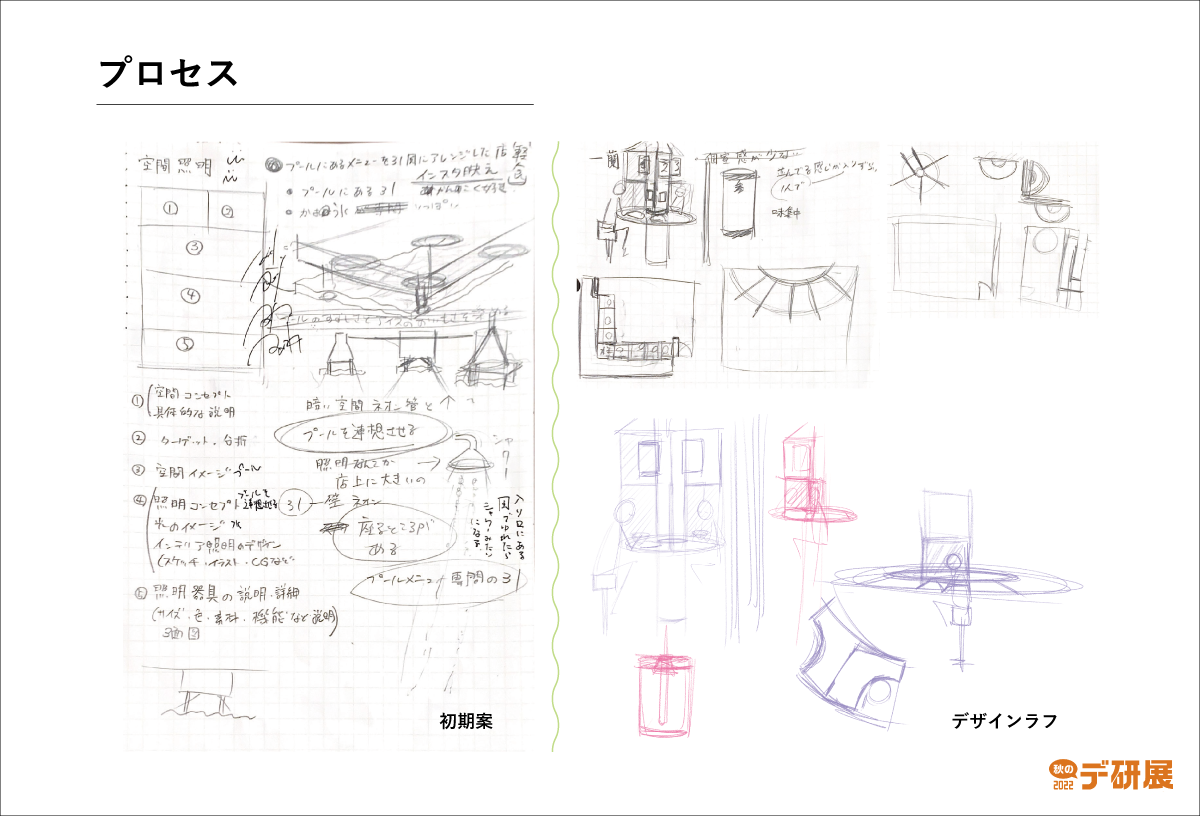 プロセス
空間 照明
プールにあるメニューを31風にアレンジした店
軽食
インスタ映え
プールにある 31
かき氷
いっぱい
①
②
③
④
⑤
暗い空間 ネオン管と
プールを連想させる
シャワー
照明なんこか
店上に大きいの
31
壁 ネオン
座るところが
ある
入り口にある
シャワーみたい
になる
プールメニュー専門の31
① 空間コンセプト
具体的な説明
② ターゲット・分析
③ 空間イメージ プール
④ 照明コンセプト プールを連想させる
光のイメージ 水
インテリア照明のデザイン
(スケッチ・イラスト・CGなど)
⑤ 照明器具の説明・詳細
(サイズ・色・素材・機能など説明)
3面図
初期案
一蘭
個室感が
1人で
味集中
デザインラフ
秋の
2022
デ研展